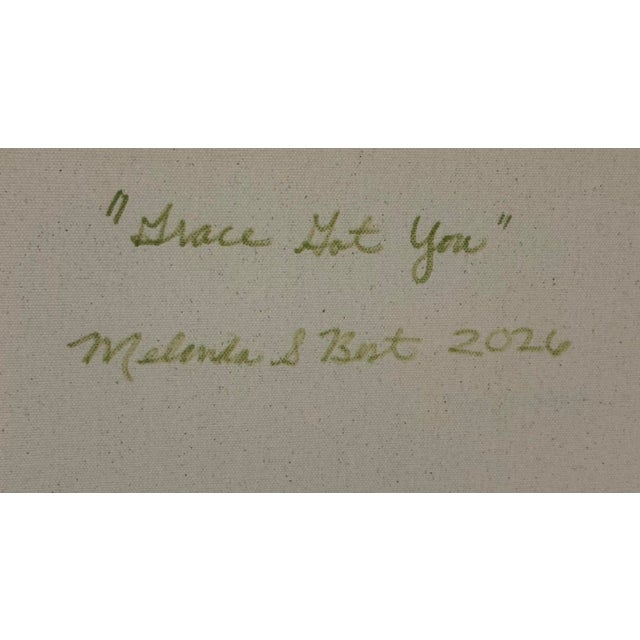 "Grace Got You"
Melonda S Best 2026